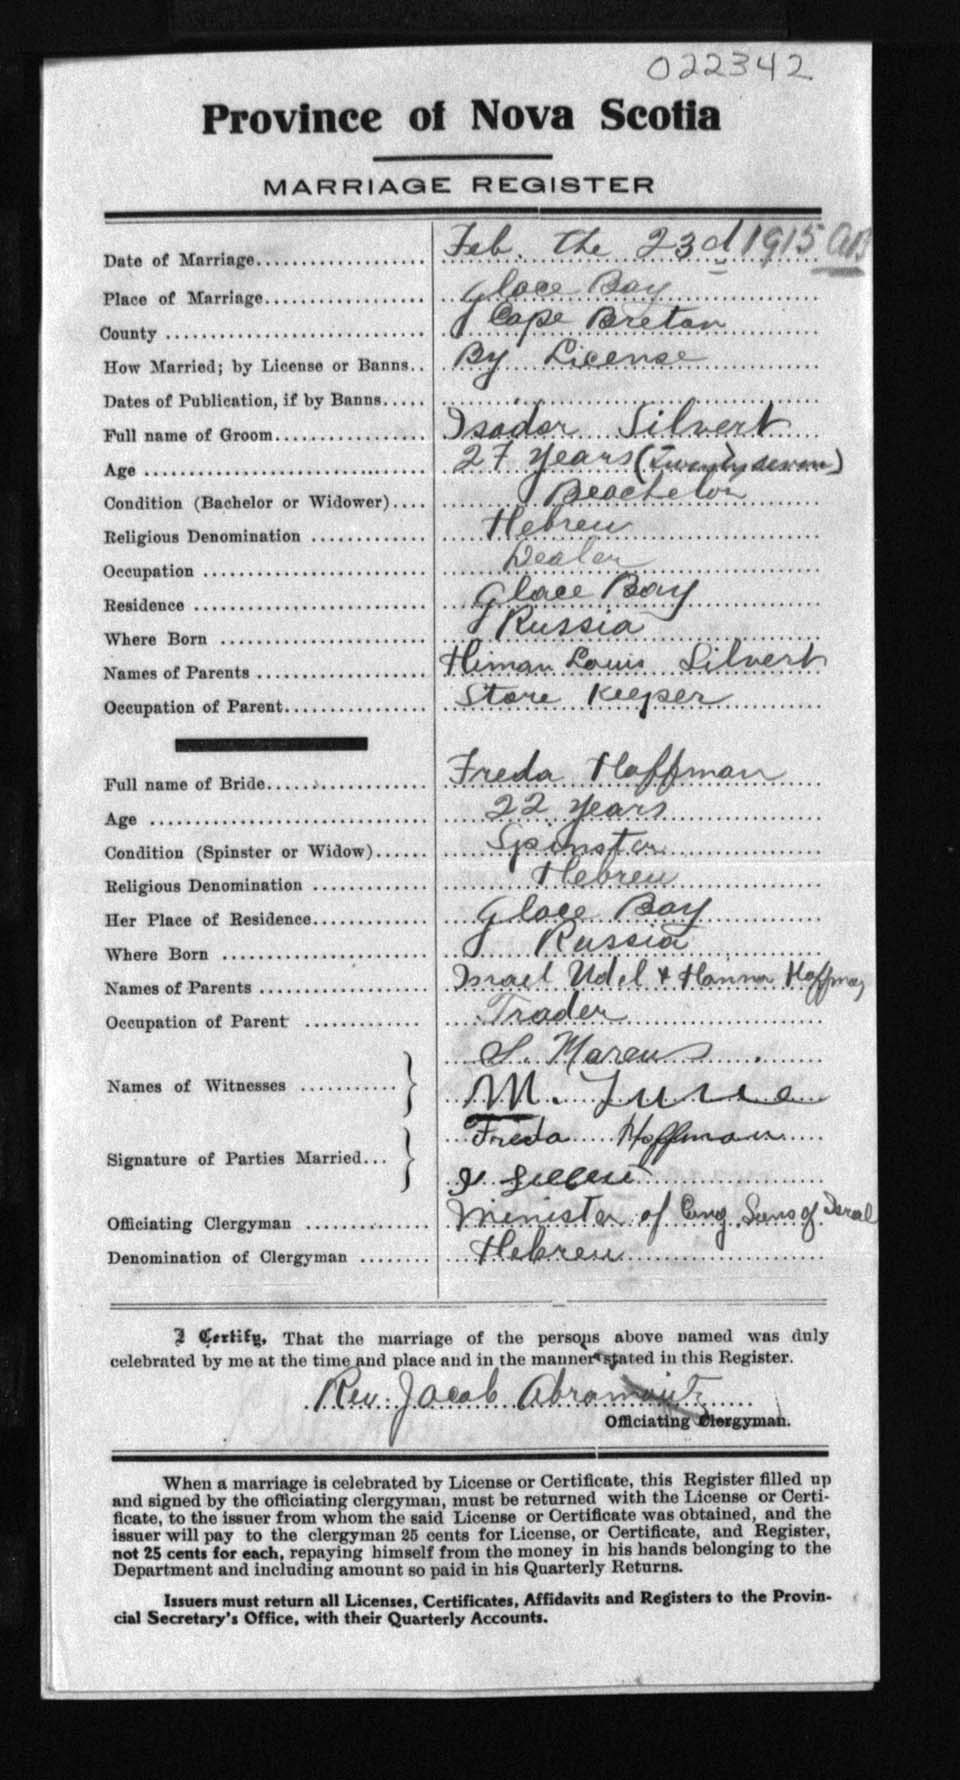 022342
Province of Nova Scotia
MARRIAGE REGISTER
Date of Marriage Feb. the 23d 1915
Place of Marriage Glace Bay
County Cape Breton
How Married; by License or Banns By License
Dates of Publication, if by Banns
Full name of Groom Isador Silvert
Age 27 years (Twenty seven)
Condition (Bachelor or Widower) Beachelor
Religious Denomination Hebrew
Occupation Dealer
Residence Glace Bay
Where Born Russia
Names of Parents Himan Louis Silvert
Occupation of Parent Store Keeper
Full name of Bride Freda Hoffman
Age 22 years
Condition (Spinster or Widow) Spinster
Religious Denomination Hebrew
Her Place of Residence Glace Bay
Where Born Russia
Names of Parents Israel Udel & Hanna Hoffman
Occupation of Parent Trader
S. Marcus
Names of Witnesses
M. Lurie
Freda Hoffman
Signature of Parties Married
Officiating Clergyman Minister of Cong Sons of Israel
Denomination of Clergyman Hebrew
I Certify, That the marriage of the persons above named was duly
celebrated by me at the time and place and in the manner stated in this Register.
Rev. Jacob Abramovitz
Officiating Clergyman.
When a marriage is celebrated by License or Certificate, this Register filled up
and signed by the officiating clergyman, must be returned with the License or Certi-
ficate, to the issuer from whom the said License or Certificate was obtained, and the
issuer will pay to the clergyman 25 cents for License, or Certificate, and Register,
not 25 cents for each, repaying himself from the money in his hands belonging to the
Department and including amount so paid in his Quarterly Returns.
Issuers must return all Licenses, Certificates, Affidavits and Registers to the Provin-
cial Secretary's Office, with their Quarterly Accounts.